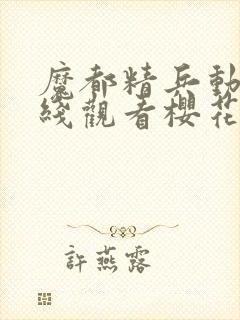 魔都精兵動
綫觀看櫻花
許燕露